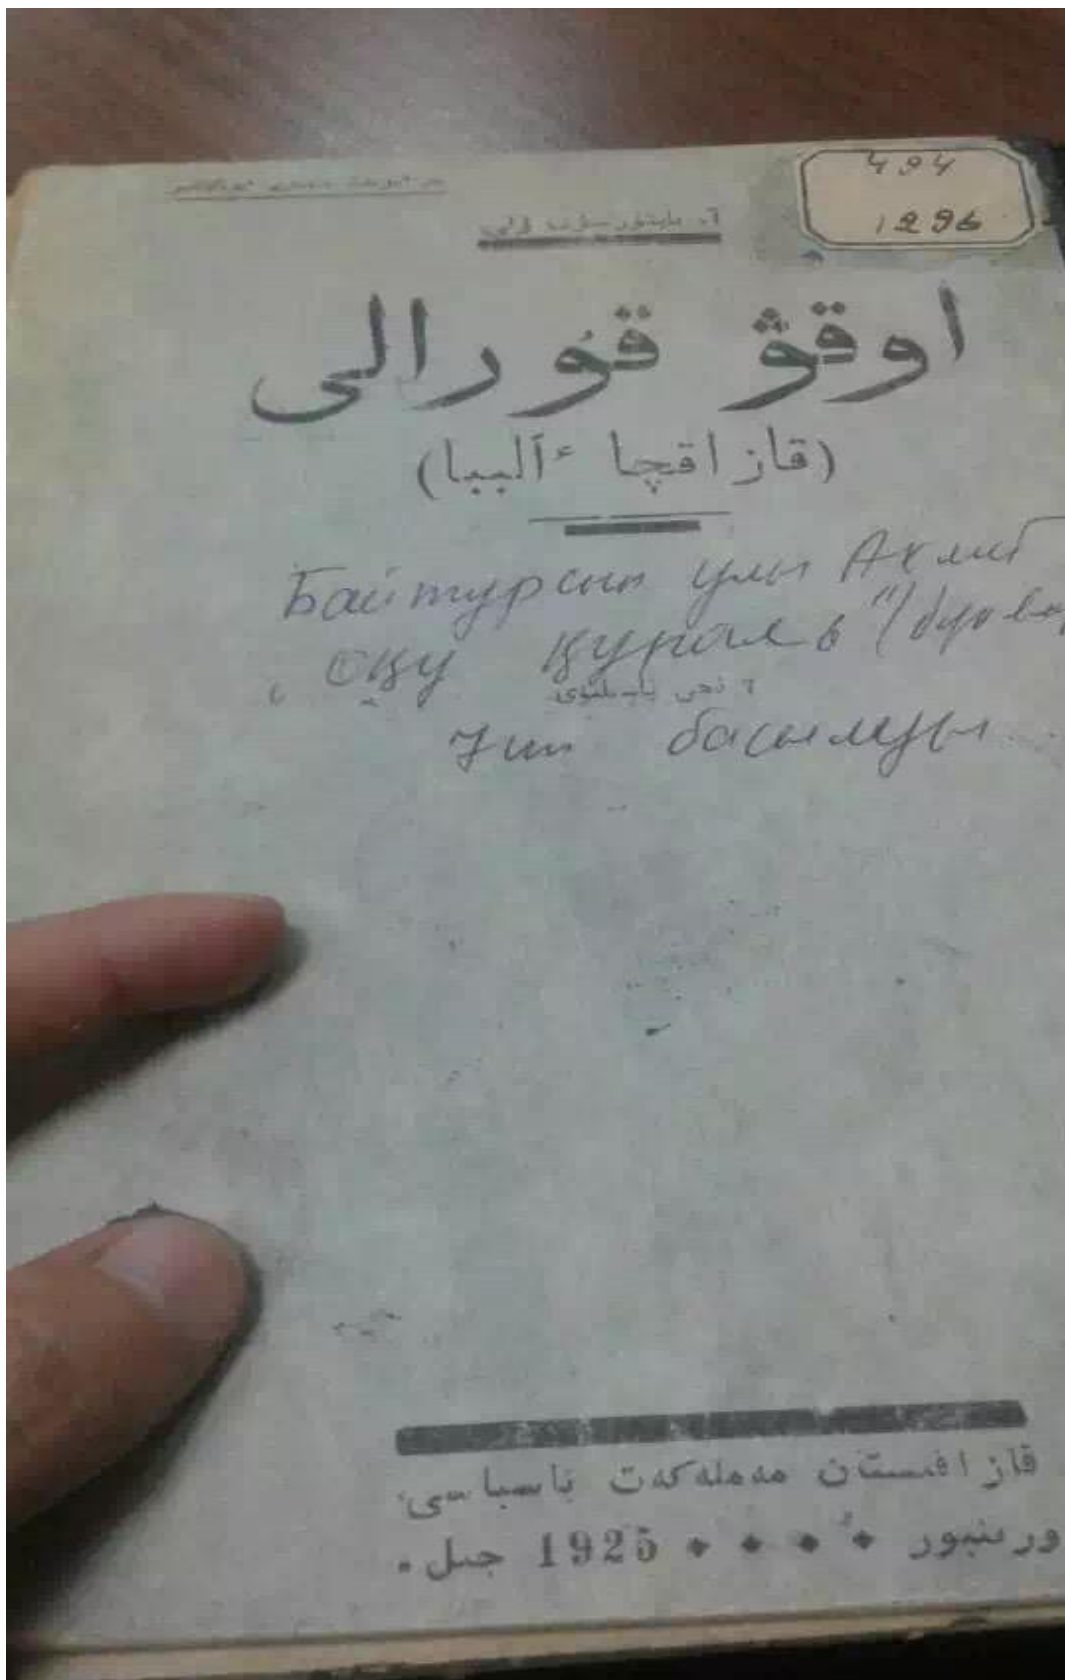 494
1296
اوقۋ قۇرالى
(قازاقچا ٴالىببا)
Байтурсын улы Ахмет
"Оқу құралы" (букварь
7 نحى باسىلۋى
7 ші басылуы
قازاقىستان مەملەكەت باسپاسى
ورىنبور 1925 جىل.